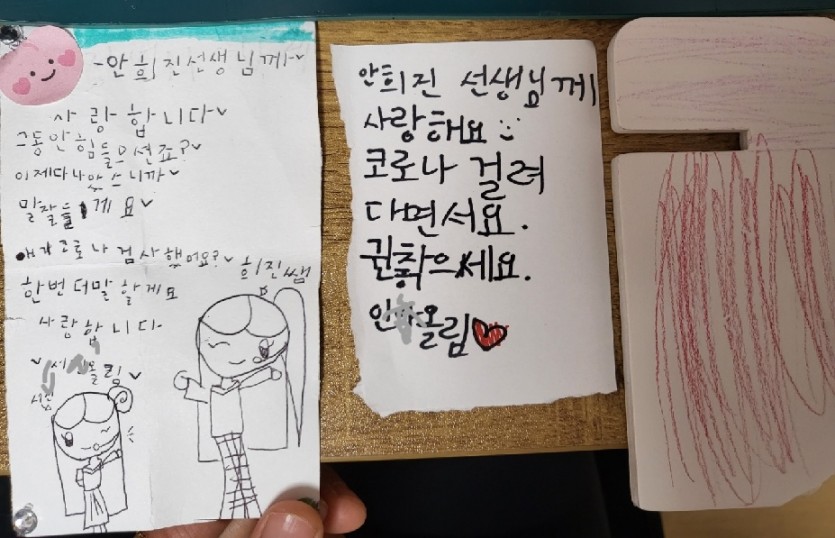 안희진선생님께
사랑합니다
그동안힘들으션죠?
이제다나았스니까
말잘들을게요
코로나검사했어요?
한번더말할게요
희진쌤
사랑합니다
안희진 선생님께
사랑해요
코로나 걸려
다면서요.
괜찮으세요.
올림